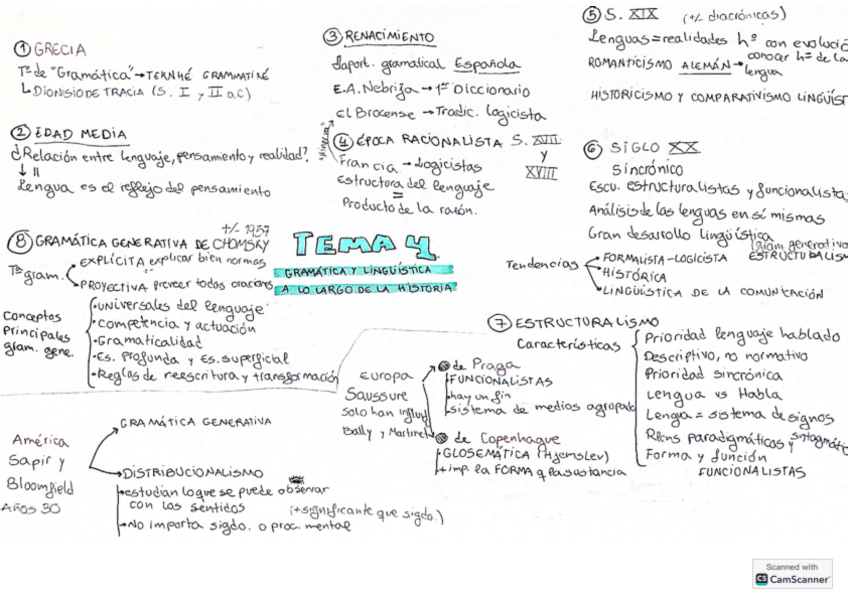 ① GRECIA
Tª de "Gramática" → TEKNHÉ GRAMMATIKÉ
↳ DIONISIO DE TRACIA (S. I y II a.C)
② EDAD MEDIA
¿Relación entre lenguaje, pensamiento y realidad?
Lengua es el reflejo del pensamiento
③ RENACIMIENTO
↳ aport. gramatical Española
E.A. Nebrija → 1er Diccionario
El Brocense → Tradic. logicista
④ ÉPOCA RACIONALISTA S. XVII
y
XVIII
Francia → Logicistas
Estructura del lenguaje
=
Producto de la razón.
⑤ S. XIX (+/- diacrónicas)
Lenguas = realidades hº con evolució
ROMANTICISMO ALEMÁN → conocer hª de la
lengua
HISTORICISMO Y COMPARATIVISMO LINGÜÍST
⑥ SIGLO XX
Sincrónico
Escu. estructuralistas y funcionalistas
Análisis de las lenguas en sí mismas
Gran desarollo lingüística
(gram. generativa
ESTRUCTURALISM
Tendencias
• FORMALISTA-LOGICISTA
• HISTÓRICA
• LINGÜÍSTICA DE LA COMUNICACIÓN
TEMA 4
GRAMÁTICA Y LINGÜÍSTICA
A LO LARGO DE LA HISTORIA
+/- 1957
⑧ GRAMÁTICA GENERATIVA DE CHOMSKY
Tª gram.
EXPLÍCITA explicar bien normas
PROYECTIVA preveer todas oraciones
Conceptos
Principales
gram. gene.
• universales del lenguaje
• Competencia y actuación
• Gramaticalidad
• Es. profunda y Es. superficial
• Reglas de reescritura y transformación
⑦ ESTRUCTURALISMO
Características
Prioridad lenguaje hablado
Descriptivo, no normativo
Prioridad sincrónica
Lengua vs Habla
Lengua = sistema de signos
Rlcns paradigmáticos y sintagmátic
Forma y función
FUNCIONALISTAS
Europa
Saussure
Solo han influid
Bally y Martinet
de Praga
FUNCIONALISTAS
hay un fin
sistema de medios agropado
de Copenhague
• GLOSEMÁTICA (Hjemslev)
• + imp. la FORMA q la sustancia
América
Sapir y
Bloomfield
Años 30
GRAMÁTICA GENERATIVA
DISTRIBUCIONALISMO
• estudian lo que se puede observar
con los sentidos (+ significante que sigdo.)
• No importa sigdo. o proc. mental
Scanned with
CS CamScanner